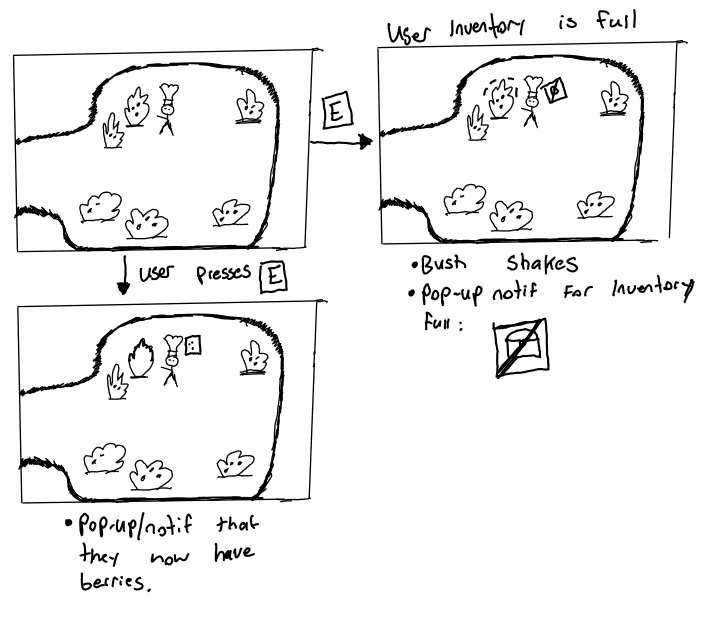 User Inventory is full
E
• Bush shakes
• Pop-up notif for Inventory
full:
User presses E
• Pop-up/notif that
they now have
berries.